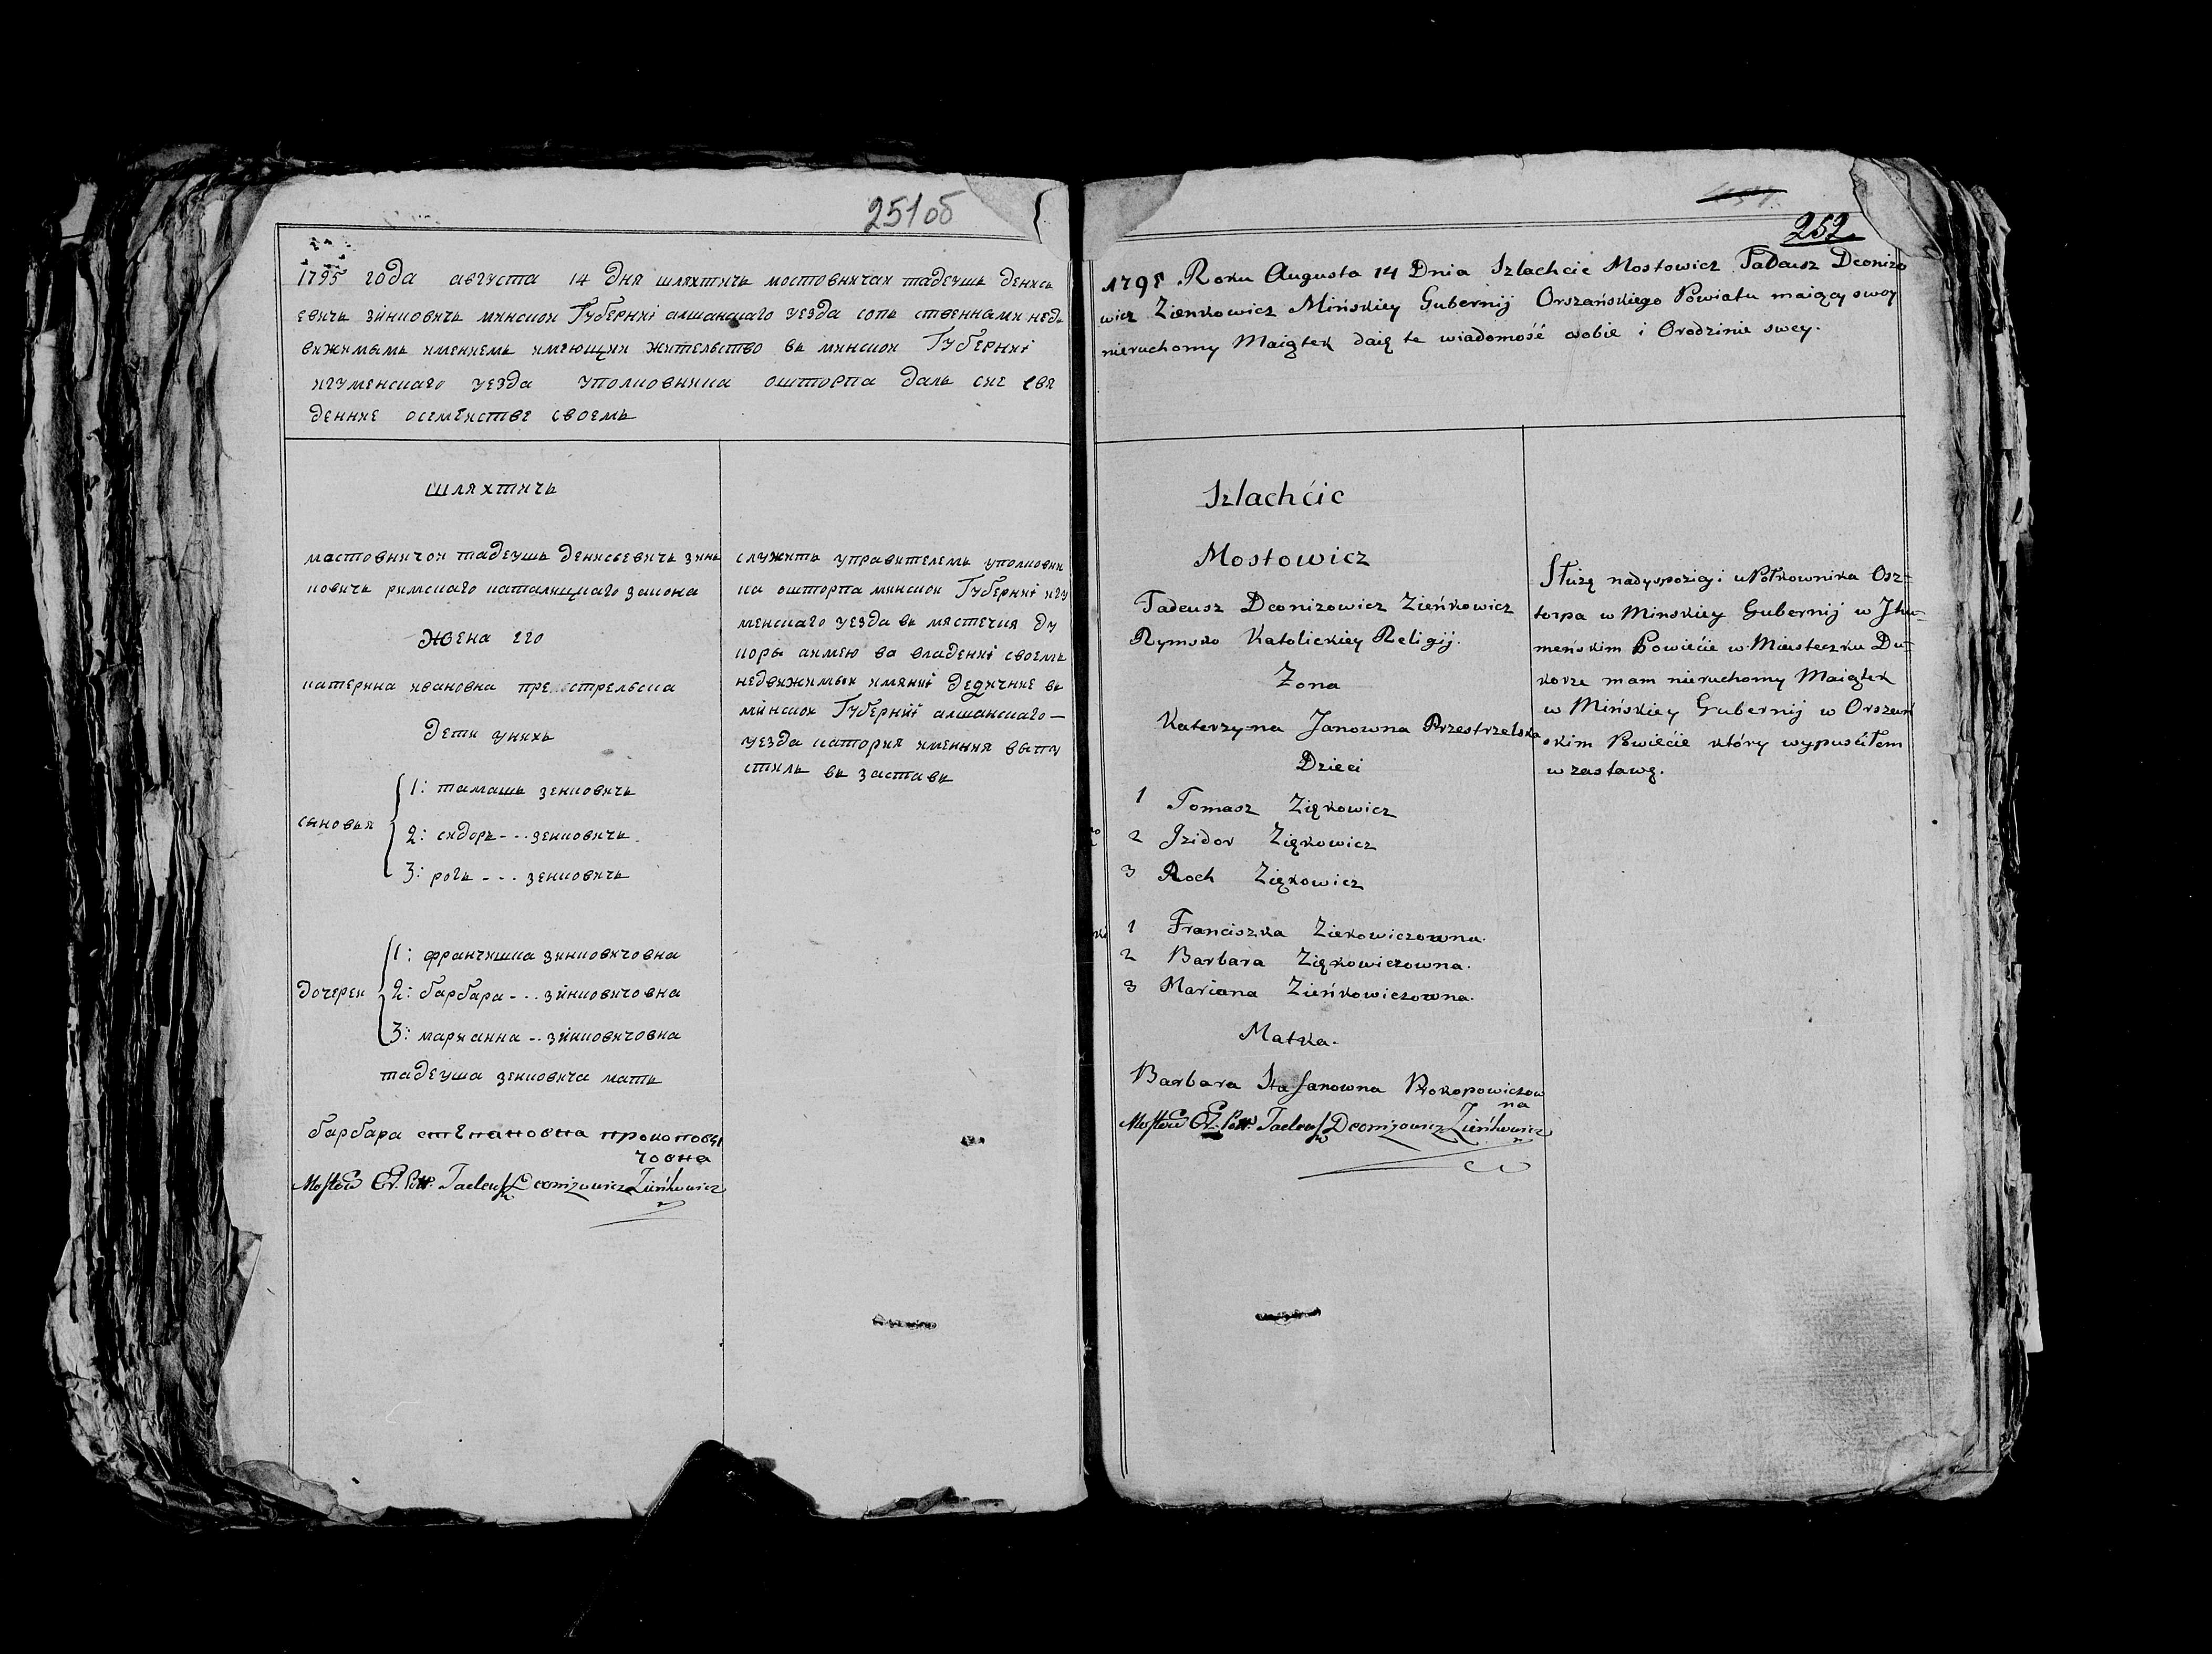 251об
1795 года августа 14 дня шляхтичь мостовничаи тадеушь денись
евичь зинковичь минскои Губерниі алшанскаго уезда сопь ственнами недь
вижимымь имениемь имеющии жительство вь минскои Губерниі
игуменскаго уезда уполковника ошторпа даль сие све
дение осемействе своемь
шляхтичь
мастовничои тадеушь денисьевичь зинь
ковичь римскаго каталицкаго закона
жена его
катерина ивановна престрельска
дети унихь
сыновья
1: тамашь зенковичь
2: сидорь - - - зенковичь
3: рогь - - - зенковичь
дочереи
1: франчишка зинковичовна
2: барбара - - - зинковичовна
3: марианна - - зинковичовна
тадеуша зенковича мать
барбара степановна прокопови
човна
Mostow Or. Pow. Tadeusz Deonizowicz Zieńkowicz
служить управителемь уполковни
ка ошторпа минскои Губерниі игу
менскаго уезда вь мястечки ду
коры аимею ва владениі своемь
недвижимыи имяниі дедичние вь
минскои Губерниі алшанскаго —
уезда катория имения выпу
стиль вь заставь
252
1795 Roku Augusta 14 Dnia Szlachcic Mostowicz Tadeusz Deonizo
wicz Zienkowicz Mińskiey Gubernij Orszańskiego Powiatu maiący swoy
nieruchomy Maiątek daię te wiadomość osobie i Orodzinie swey.
Szlachćic
Mostowicz
Tadeusz Deonizowicz Zieńkowicz
Rymsko Katolickiey Religij.
Zona
Katerzyna Janowna Przestrzelska
Dzieci
1 Tomasz Ziękowicz
2 Izidor Ziękowicz
3 Roch Ziękowicz
1 Franciszka Ziekowiczowna.
2 Barbara Ziękowiczowna.
3 Mariana Zieńkowiczowna.
Matka.
Barbara Stafanowna Prokopowiczow
na
Mostow Or. Pow. Tadeusz Deonizowicz Zieńkowicz
Służę nadyspozicyi uPołkownika Osz-
torpa w Minskiey Gubernij w Jhu-
meńskim Powiećie w Miasteczku Du-
korze mam nieruchomy Maiątek
w Mińskiey Gubernij w Orszań
skim Powiećie który wypuśćiłem
w zastawę.